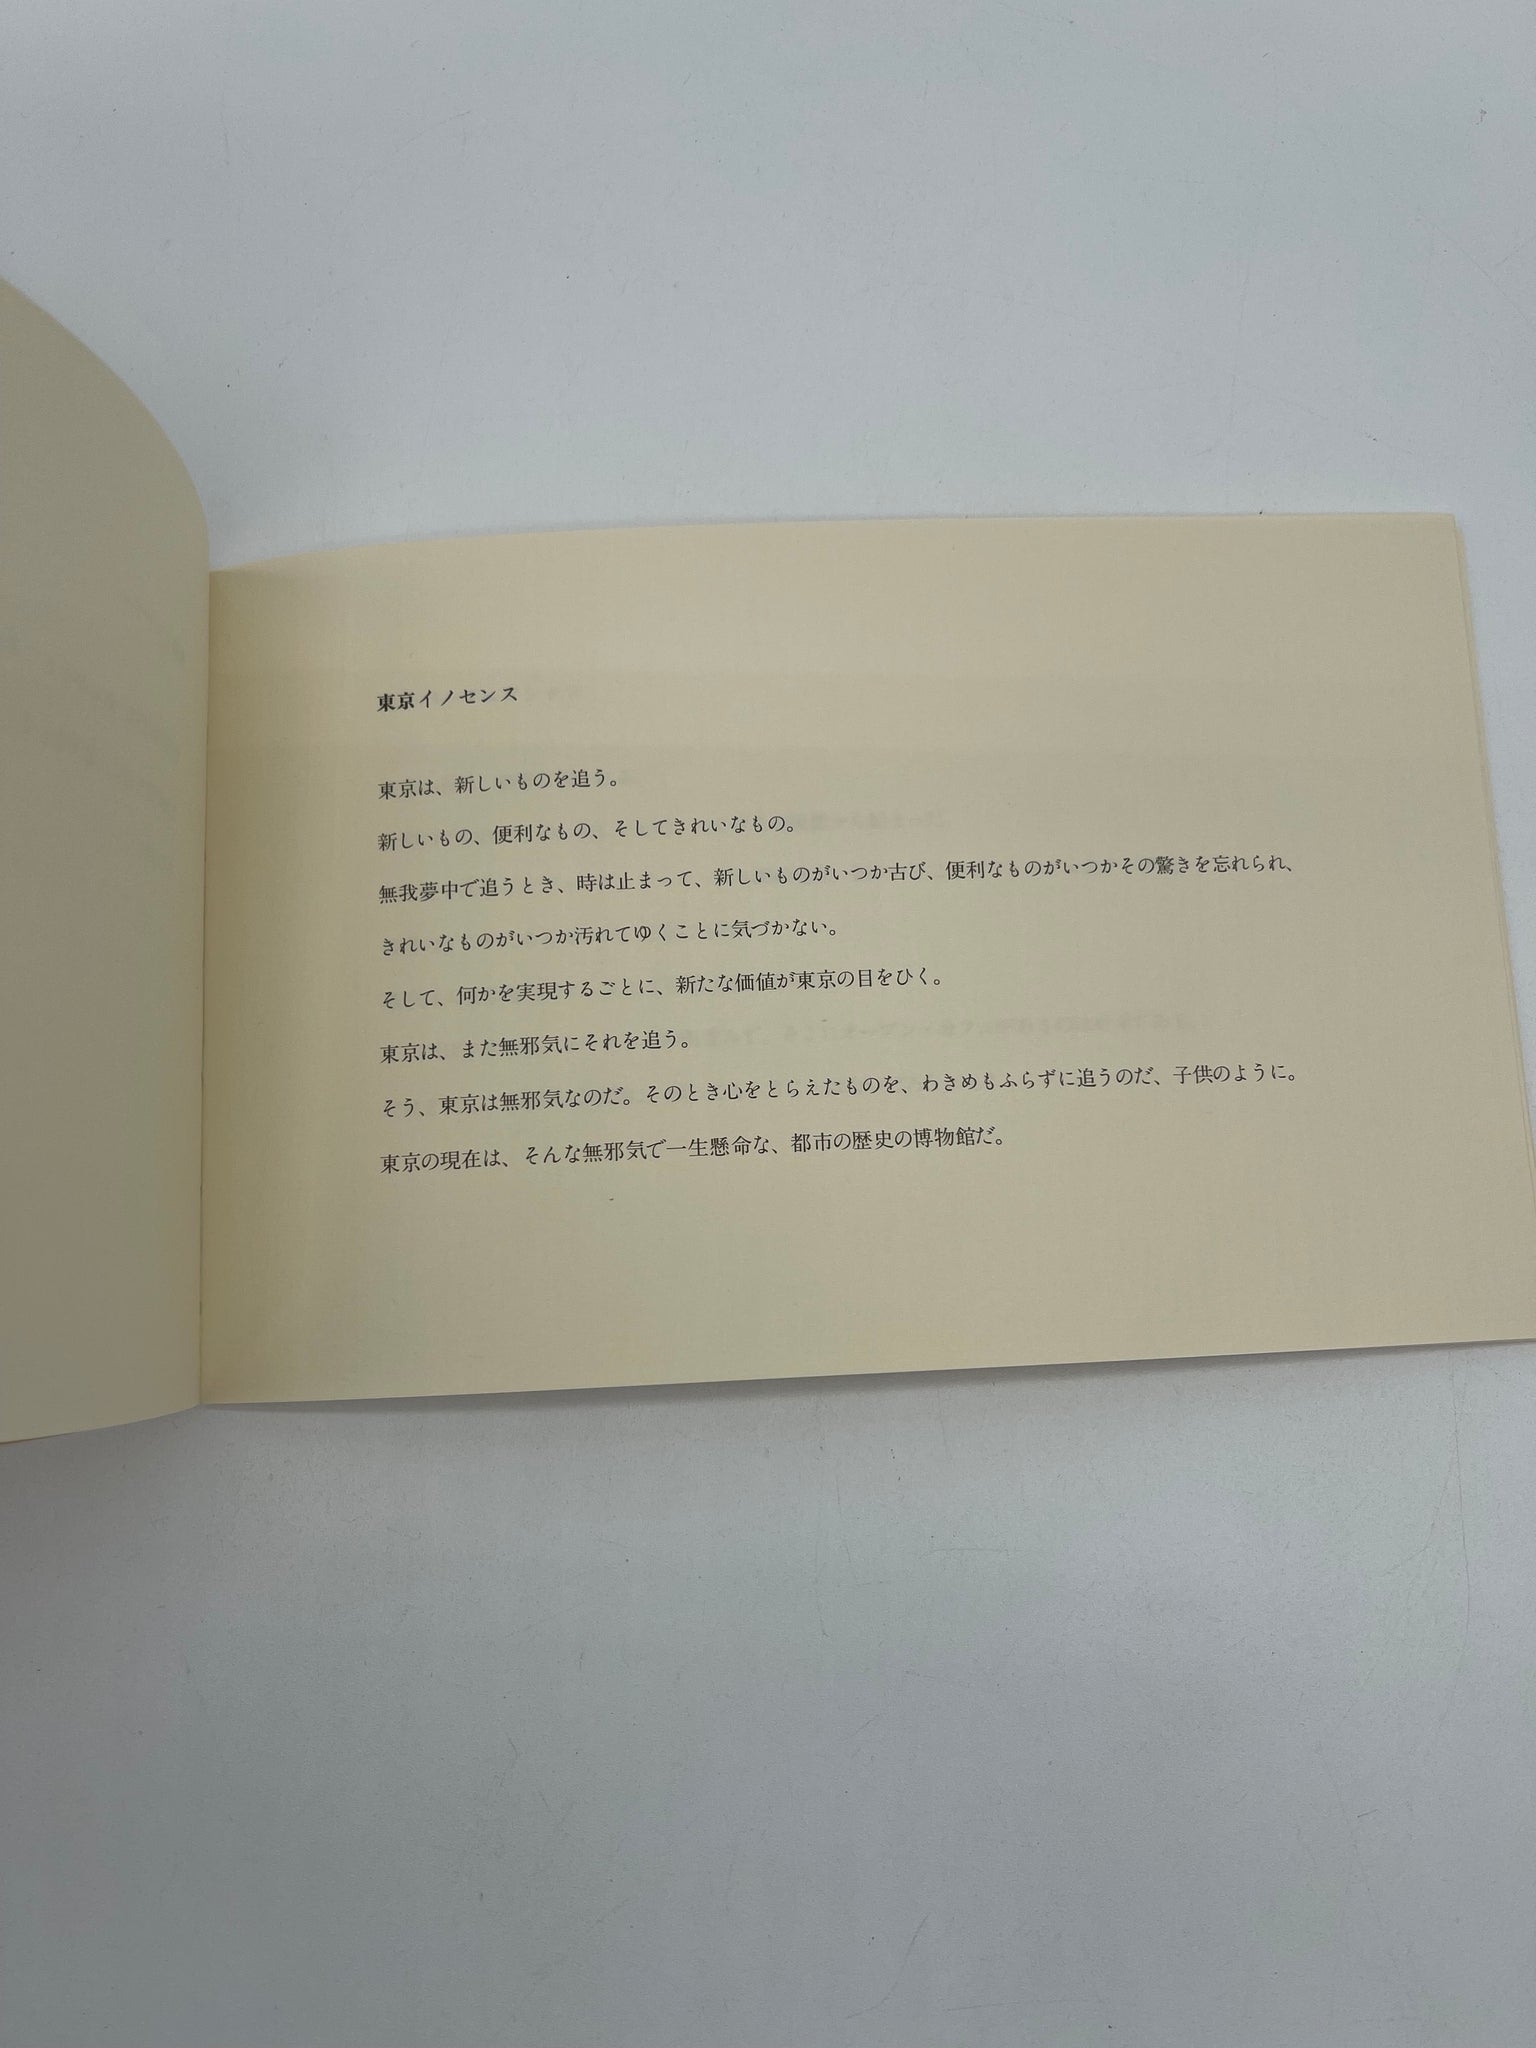 東京イノセンス
東京は、新しいものを追う。
新しいもの、便利なもの、そしてきれいなもの。
無我夢中で追うとき、時は止まって、新しいものがいつか古び、便利なものがいつかその驚きを忘れられ、
きれいなものがいつか汚れてゆくことに気づかない。
そして、何かを実現するごとに、新たな価値が東京の目をひく。
東京は、また無邪気にそれを追う。
そう、東京は無邪気なのだ。そのとき心をとらえたものを、わきめもふらずに追うのだ、子供のように。
東京の現在は、そんな無邪気で一生懸命な、都市の歴史の博物館だ。